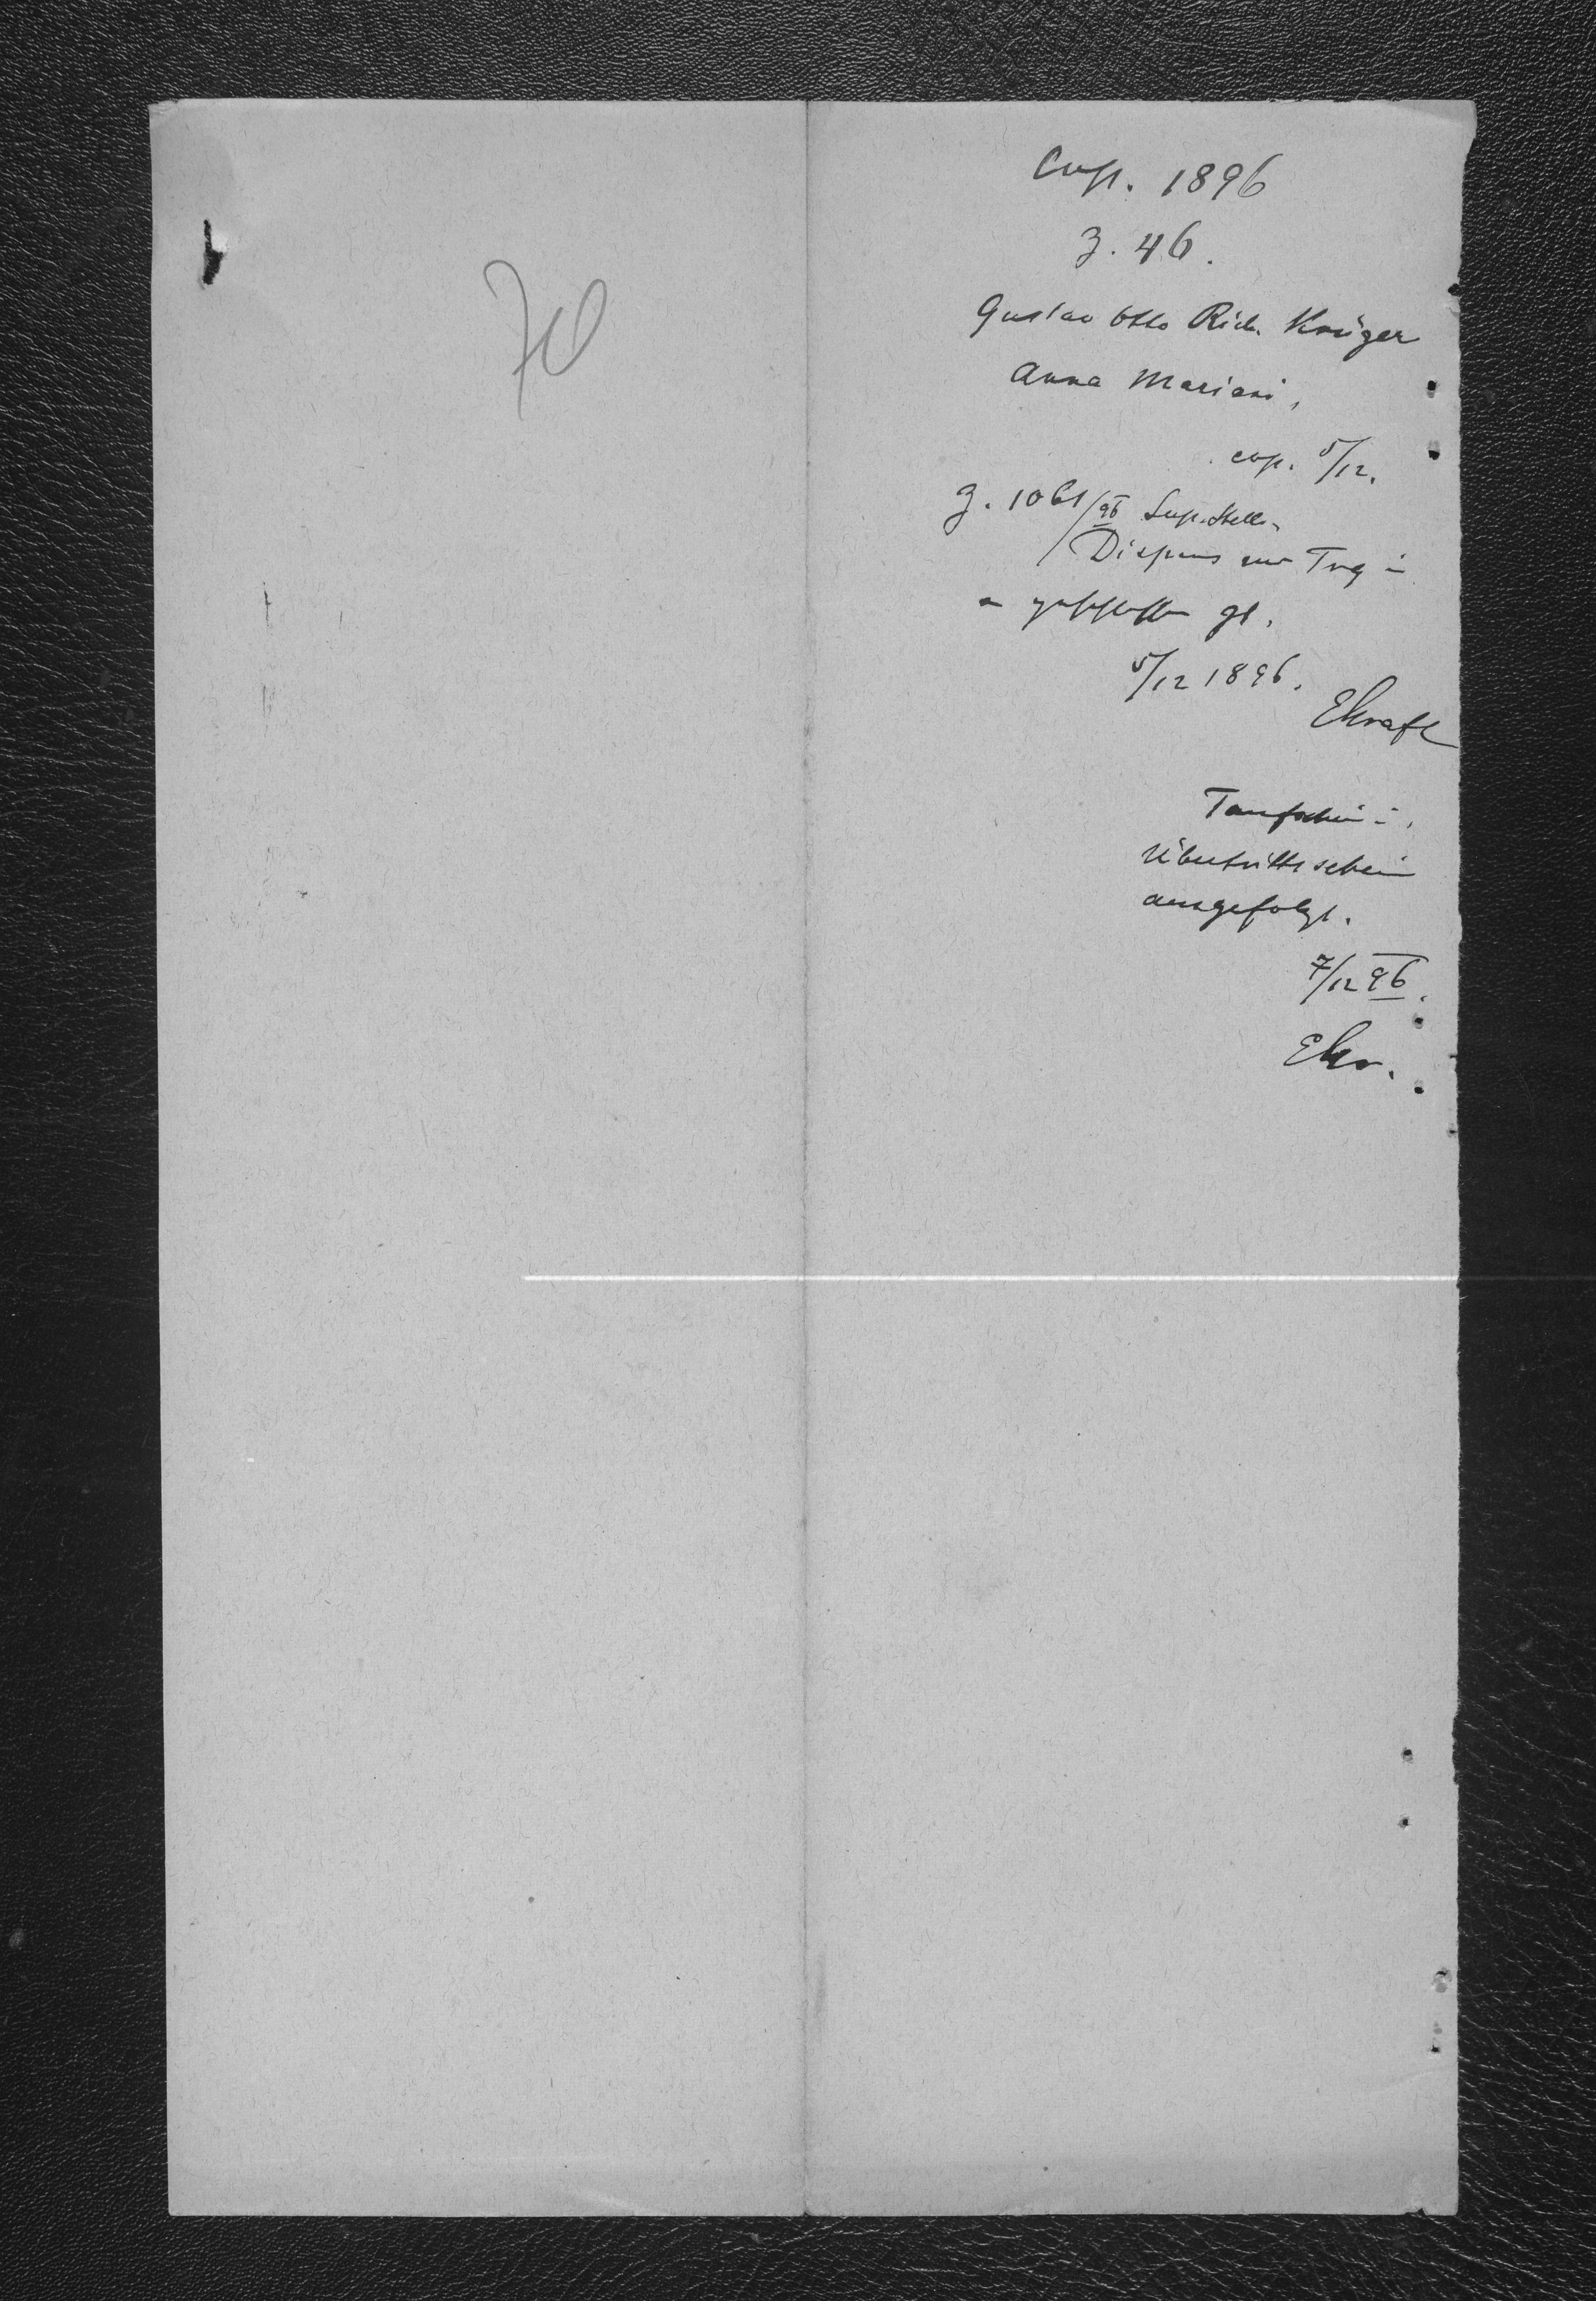 70
Cop. 1896
Z. 46.
Gustav Otto Rich. Krüger
Anna Mariani,
cop. 5/12.
Z. 1061/96 Sup.
Dispens Trg
gt.
5/12 1896.
EKraft
Taufschein
Übertrittschein
ausgefolgt.
7/12 96.
EKr.